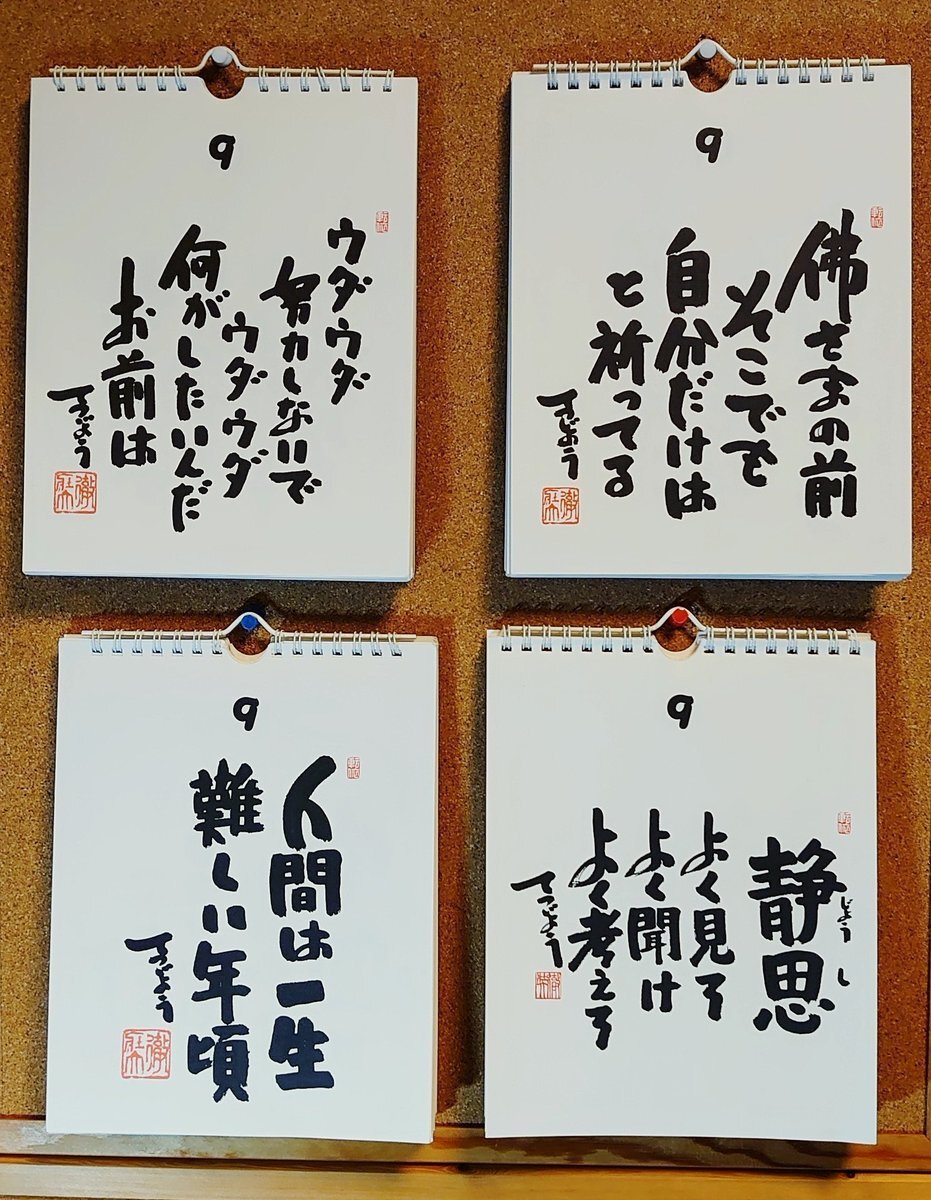 9
ウダウダ
努力しないで
ウダウダ
何がしたいんだ
お前は
てつじょう
9
佛さまの前
そこでも
自分だけは
と祈ってる
てつじょう
9
人間は一生
難しい年頃
てつじょう
9
静思
じょうし
よく見て
よく聞け
よく考えて
てつじょう